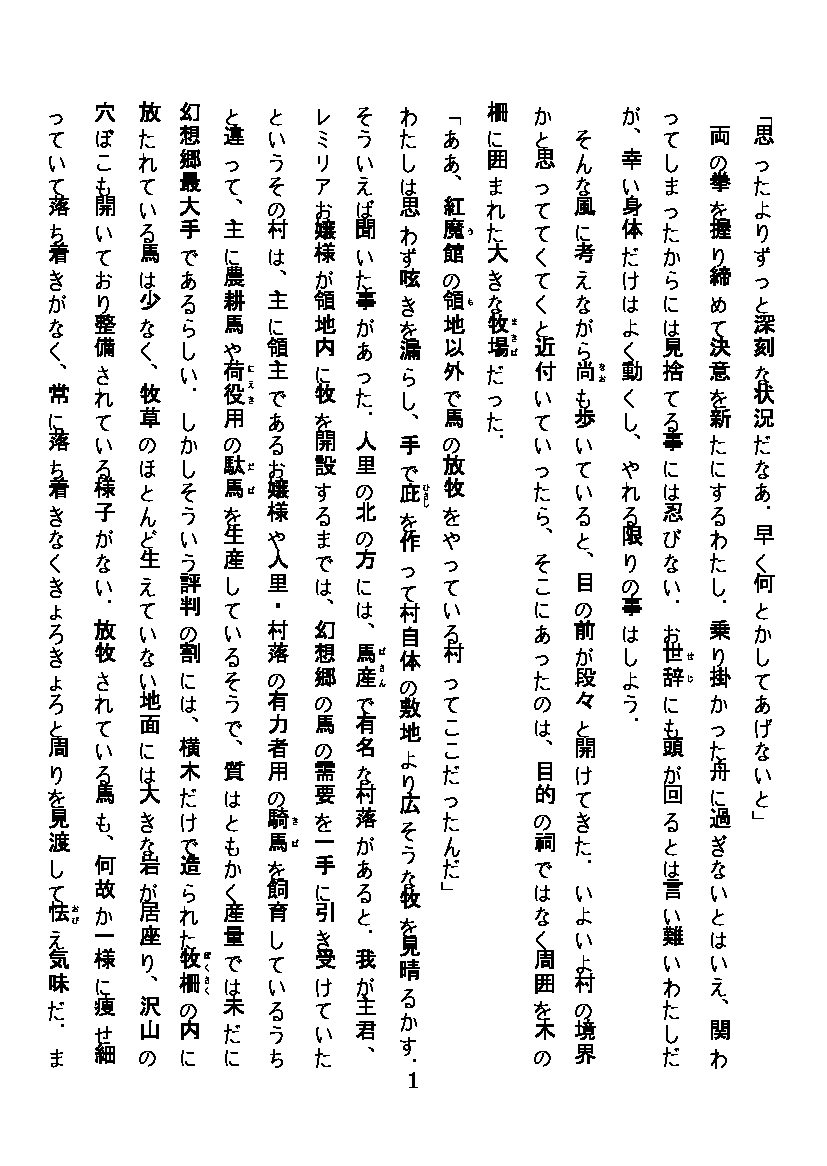 「思ったよりずっと深刻な状況だなあ．早く何とかしてあげないと」
　両の拳を握り締めて決意を新たにするわたし．乗り掛かった舟に過ぎないとはいえ、関わ
ってしまったからには見捨てる事には忍びない．お世辞にも頭が回るとは言い難いわたしだ
が、幸い身体だけはよく動くし、やれる限りの事はしよう．
　そんな風に考えながら尚も歩いていると、目の前が段々と開けてきた．いよいよ村の境界
かと思っててくてくと近付いていったら、そこにあったのは、目的の祠ではなく周囲を木の
柵に囲まれた大きな牧場だった．
「ああ、紅魔館の領地以外で馬の放牧をやっている村ってここだったんだ」
わたしは思わず呟きを漏らし、手で庇を作って村自体の敷地より広そうな牧を見晴るかす．
そういえば聞いた事があった．人里の北の方には、馬産で有名な村落があると．我が主君、
レミリアお嬢様が領地内に牧を開設するまでは、幻想郷の馬の需要を一手に引き受けていた
というその村は、主に領主であるお嬢様や人里・村落の有力者用の騎馬を飼育しているうち
と違って、主に農耕馬や荷役用の駄馬を生産しているそうで、質はともかく産量では未だに
幻想郷最大手であるらしい．しかしそういう評判の割には、横木だけで造られた牧柵の内に
放たれている馬は少なく、牧草のほとんど生えていない地面には大きな岩が居座り、沢山の
穴ぼこも開いており整備されている様子がない．放牧されている馬も、何故か一様に痩せ細
っていて落ち着きがなく、常に落ち着きなくきょろきょろと周りを見渡して怯え気味だ．ま
1